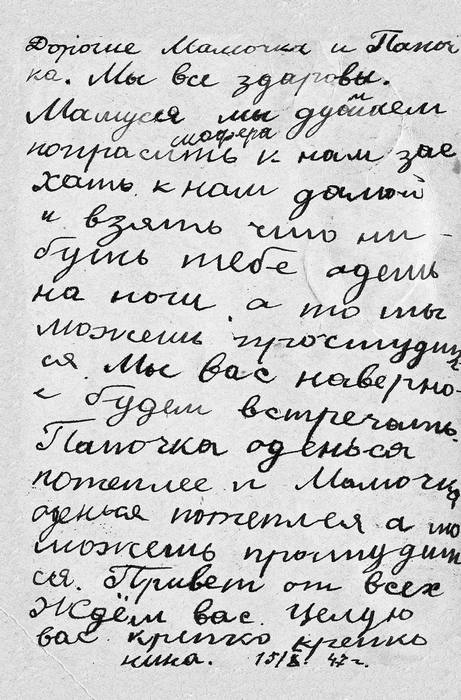 Дорогие Мамочка и Папоч
ка. Мы все здаровы.
Мамуся мы думаем
шофера
попрасить к нам зае
хать к нам дамой
и взять что ни-
будь тебе адеть
на ноги а то ты
можешь простудит
ся. Мы вас наверно-
е будем встречать.
Папочка оденься
потеплее и Мамочка
оденься потеплея а то
можешь простудит
ся. Привет от всех
Ждём вас. Целую
вас крепко крепко
нина. 15/X. 47 г.